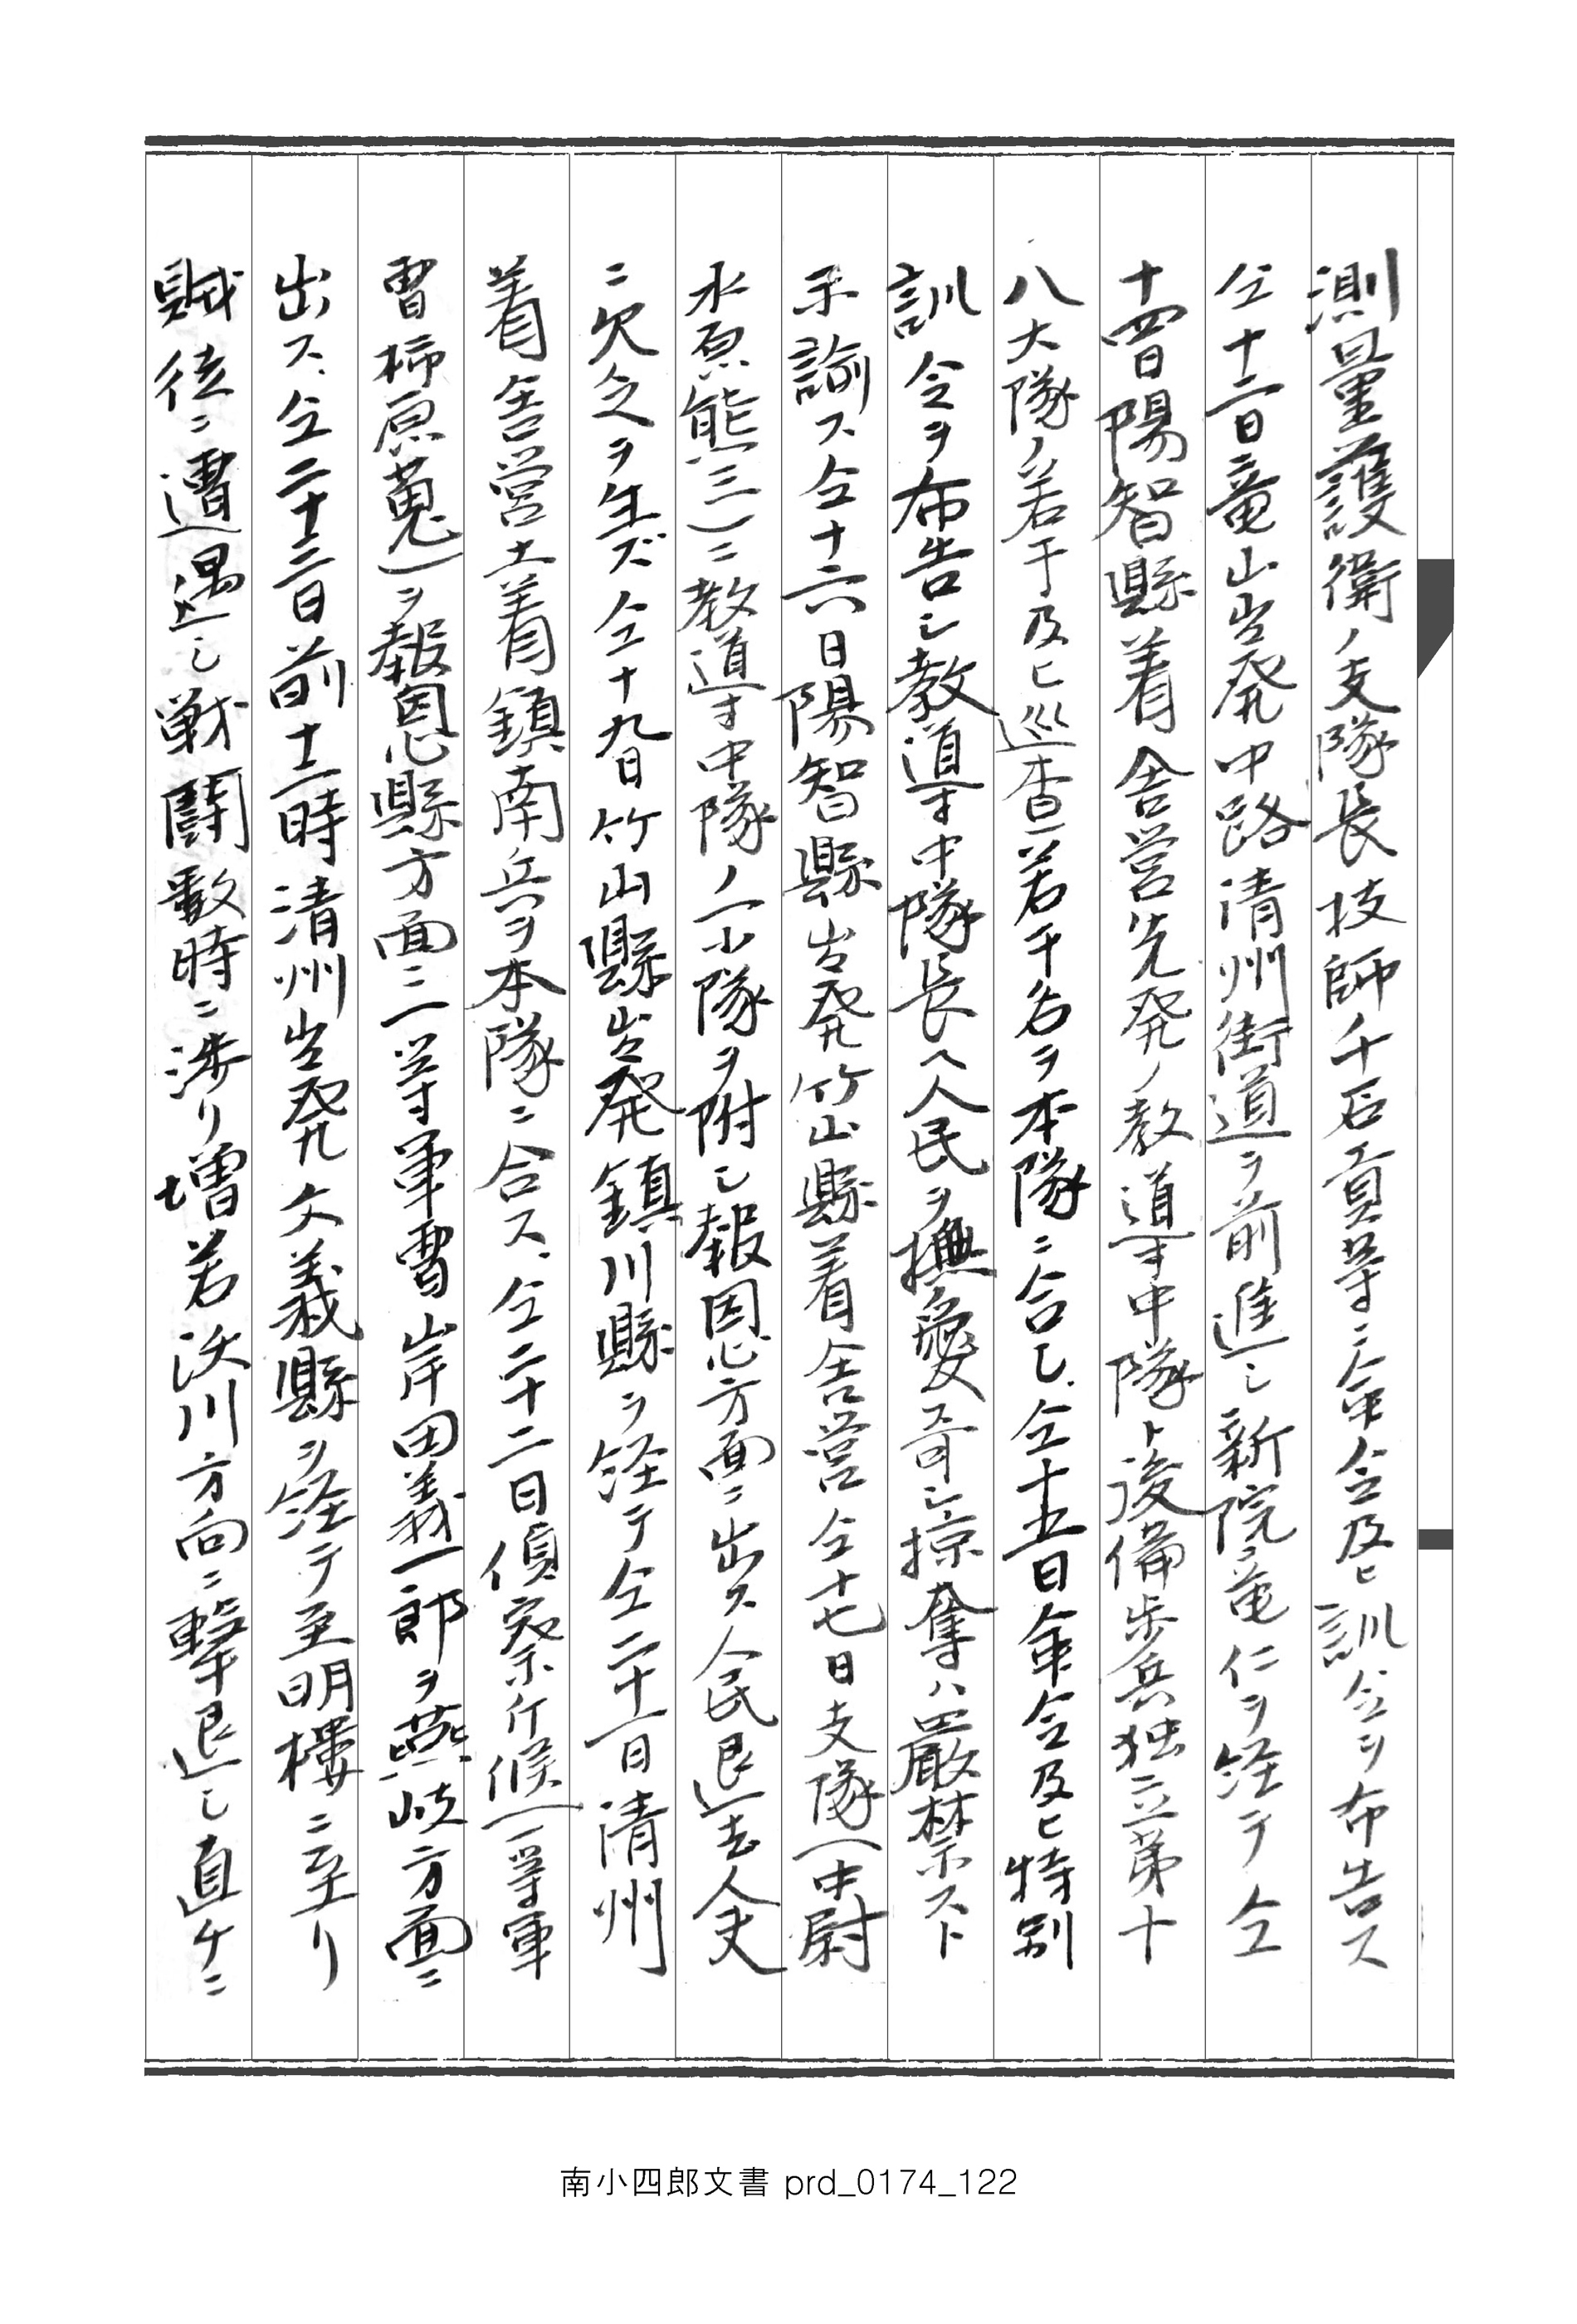 測量護衛ノ支隊長技師千石貢等ニ命令及ヒ訓令ヲ布告ス
仝十二日竜山出発中路清州街道ヲ前進シ新院竜仁ヲ経テ仝
十四日陽智縣着舎営先発ノ教導中隊ト後備歩兵独立第十
八大隊ノ若干及ヒ巡査若干名ヲ本隊ニ合し仝十五日命令及ヒ特別
訓令ヲ布告シ教導中隊長ヘ人民ヲ撫愛苛シ掠奪ハ厳禁スト
示諭ス仝十六日陽智縣出発竹山縣着舎営仝十七日支隊(中尉
水原熊三)ニ教導中隊ノ一小隊ヲ附シ報恩方面ニ出ス人民退去人夫
ニ欠乏ヲ生ズ仝十九日竹山縣出発鎮川縣ヲ経テ仝二十一日清州
着舎営土着鎮南兵ヲ本隊ニ合ス仝二十二日偵察斤候(一等軍
曹柿原蒐)ヲ報恩縣方面ニ二等軍曹岸田義一郎ヲ燕岐方面ニ
出ス仝二十三日前十一時清州出発文義縣ヲ経テ至明樓ニ至リ
賊徒ニ遭遇シ戦闘数時ニ渉リ増若沃川方向ニ撃退シ直ケニ
南小四郎文書 prd_0174_122